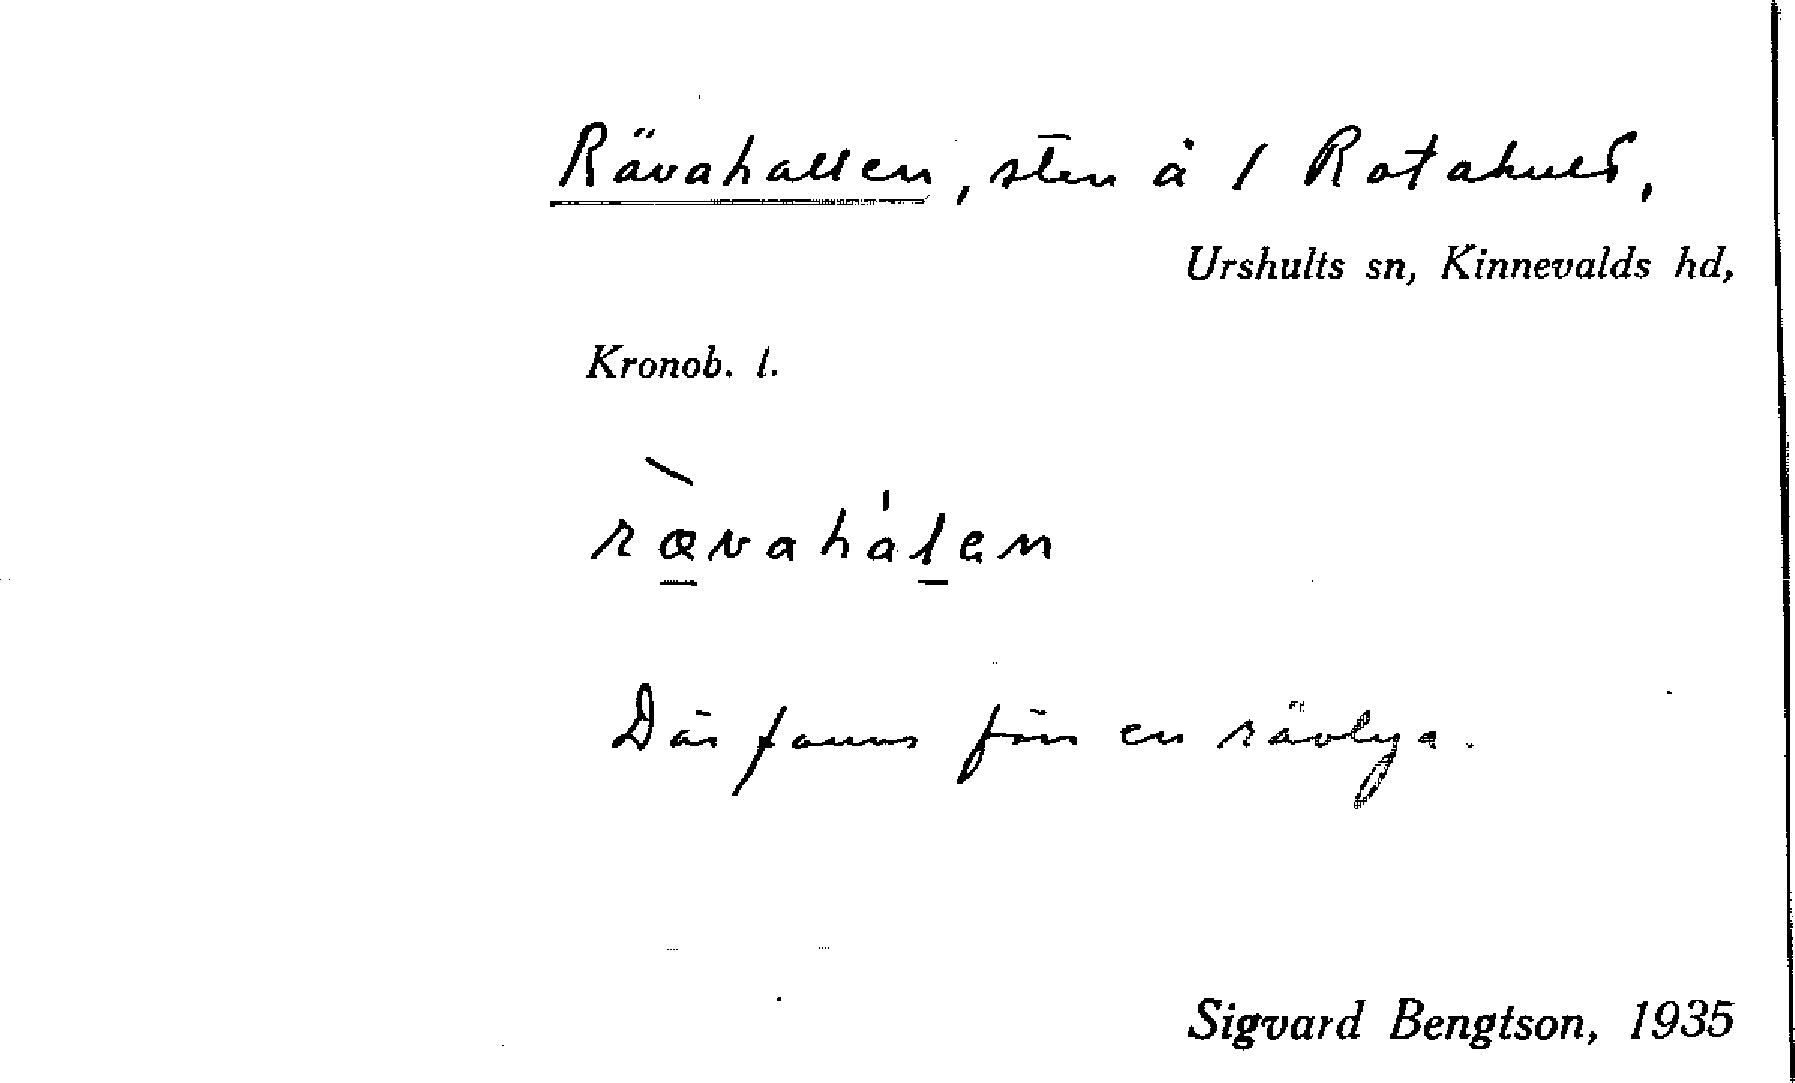 Rävahallen, sten å 1 Rotahult,
Urshults sn, Kinnevalds hd,
Kronob. l.
rævahalen
Där fanns förr en rävlya.
Sigvard Bengtson, 1935